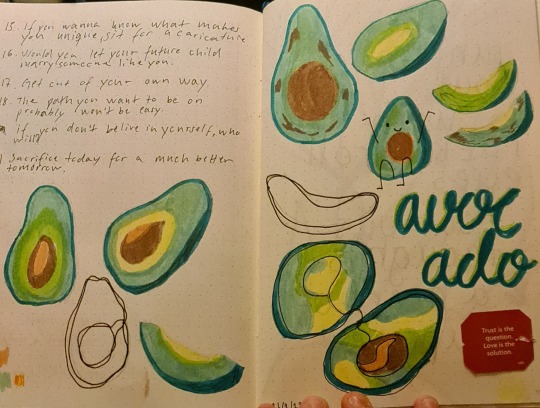 15. If you wanna know what makes
you unique, sit for a caricature
16. Would you let your future child
marry someone like you.
17. Get out of your own way
18. The path you want to be on
probably won't be easy.
if you don't belive in yourself, who
will?
Sacrifice today for a much better
tomorrow.
avoc
ado
Trust is the
question.
Love is the
solution.